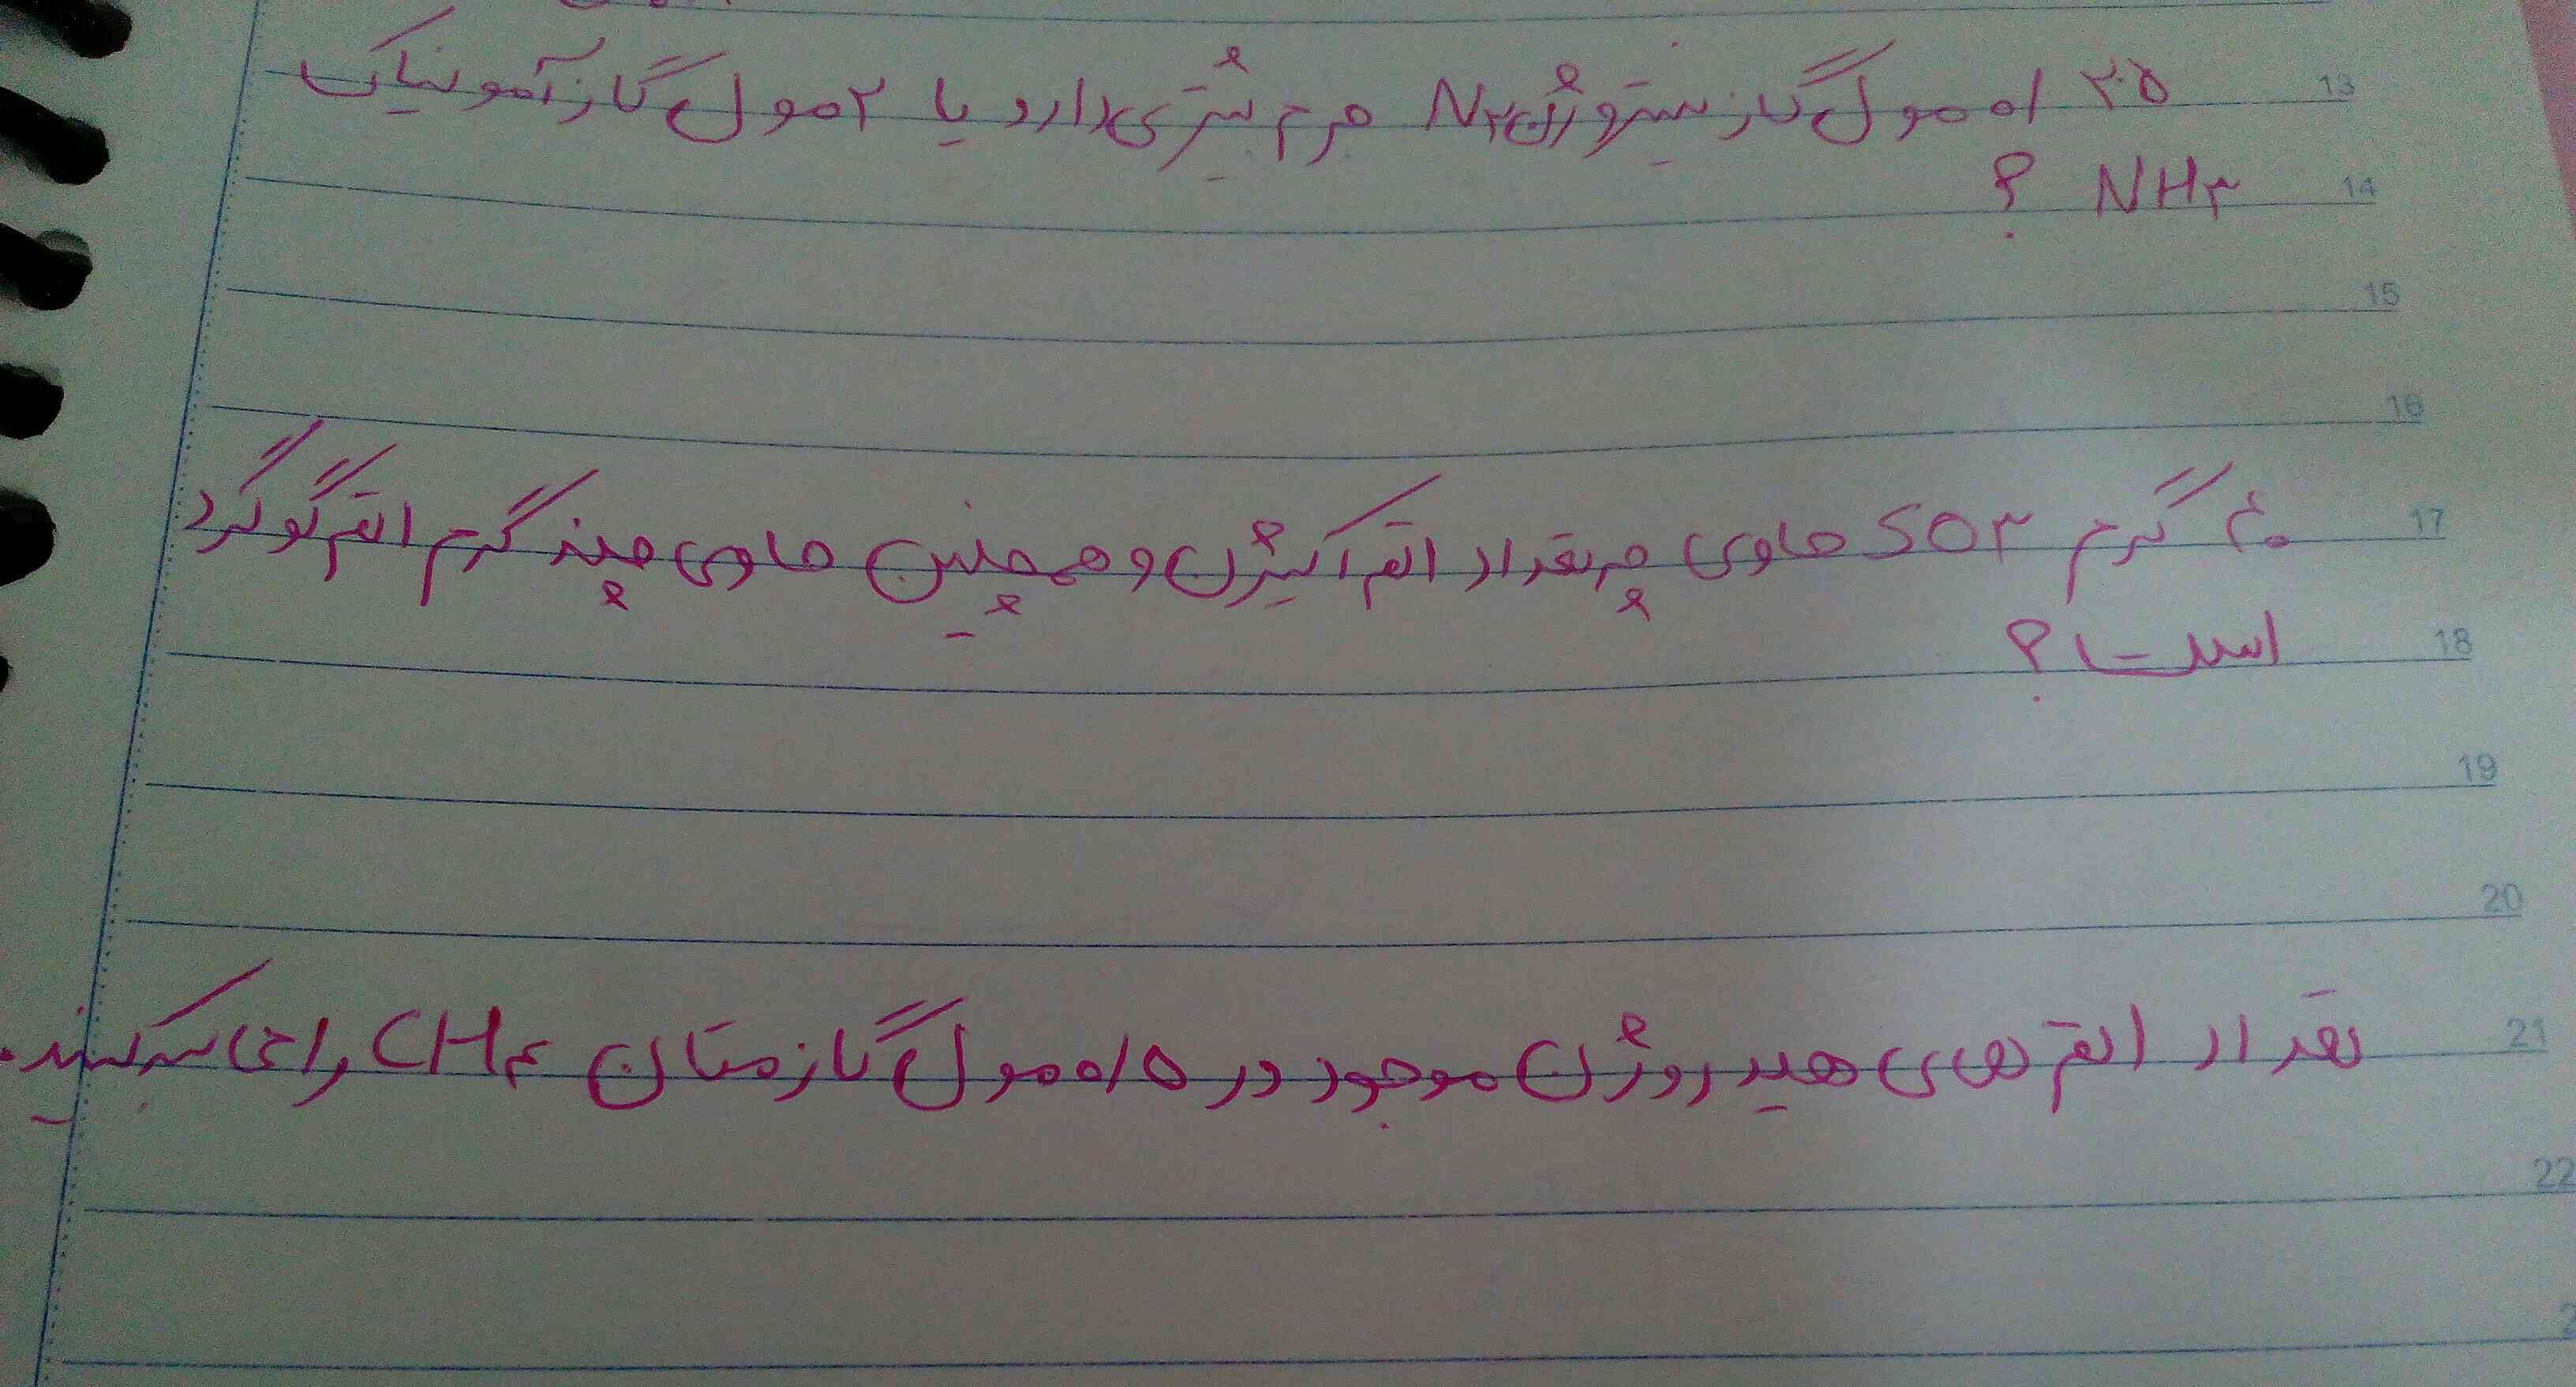 13
۳۵ ۱۰ مول گاز نیتروژن N۲ جرم بیشتری دارد یا ۲ مول گاز آمونیاک
14
NH۳ ؟
15
16
17
۴۰ گرم SO۳ حاوی چه تعداد اتم اکسیژن و همچنین حاوی چند گرم اتم گوگرد
18
است ؟
19
20
21
تعداد اتم های هیدروژن موجود در ۰/۵ مول گاز متان CH۴ را محاسبه کنید.
22
2